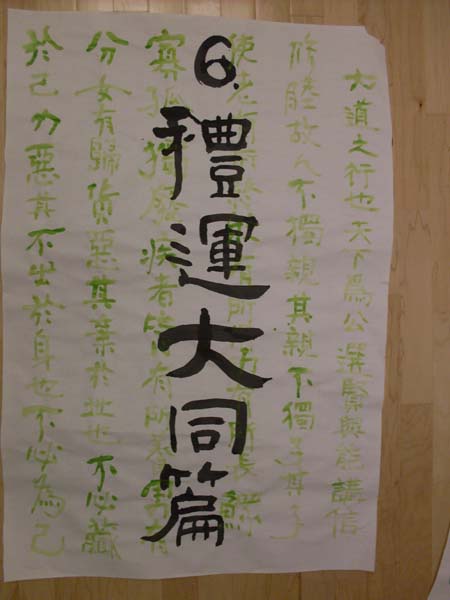 6. 禮運大同篇
大道之行也天下爲公選賢與能講信
修睦故人不獨親其親不獨子其子
使老有所終壯有所用幼有所長鰥
寡孤獨廢疾者皆有所養男有
分女有歸貨惡其棄於地也不必藏
於己力惡其不出於身也不必為己